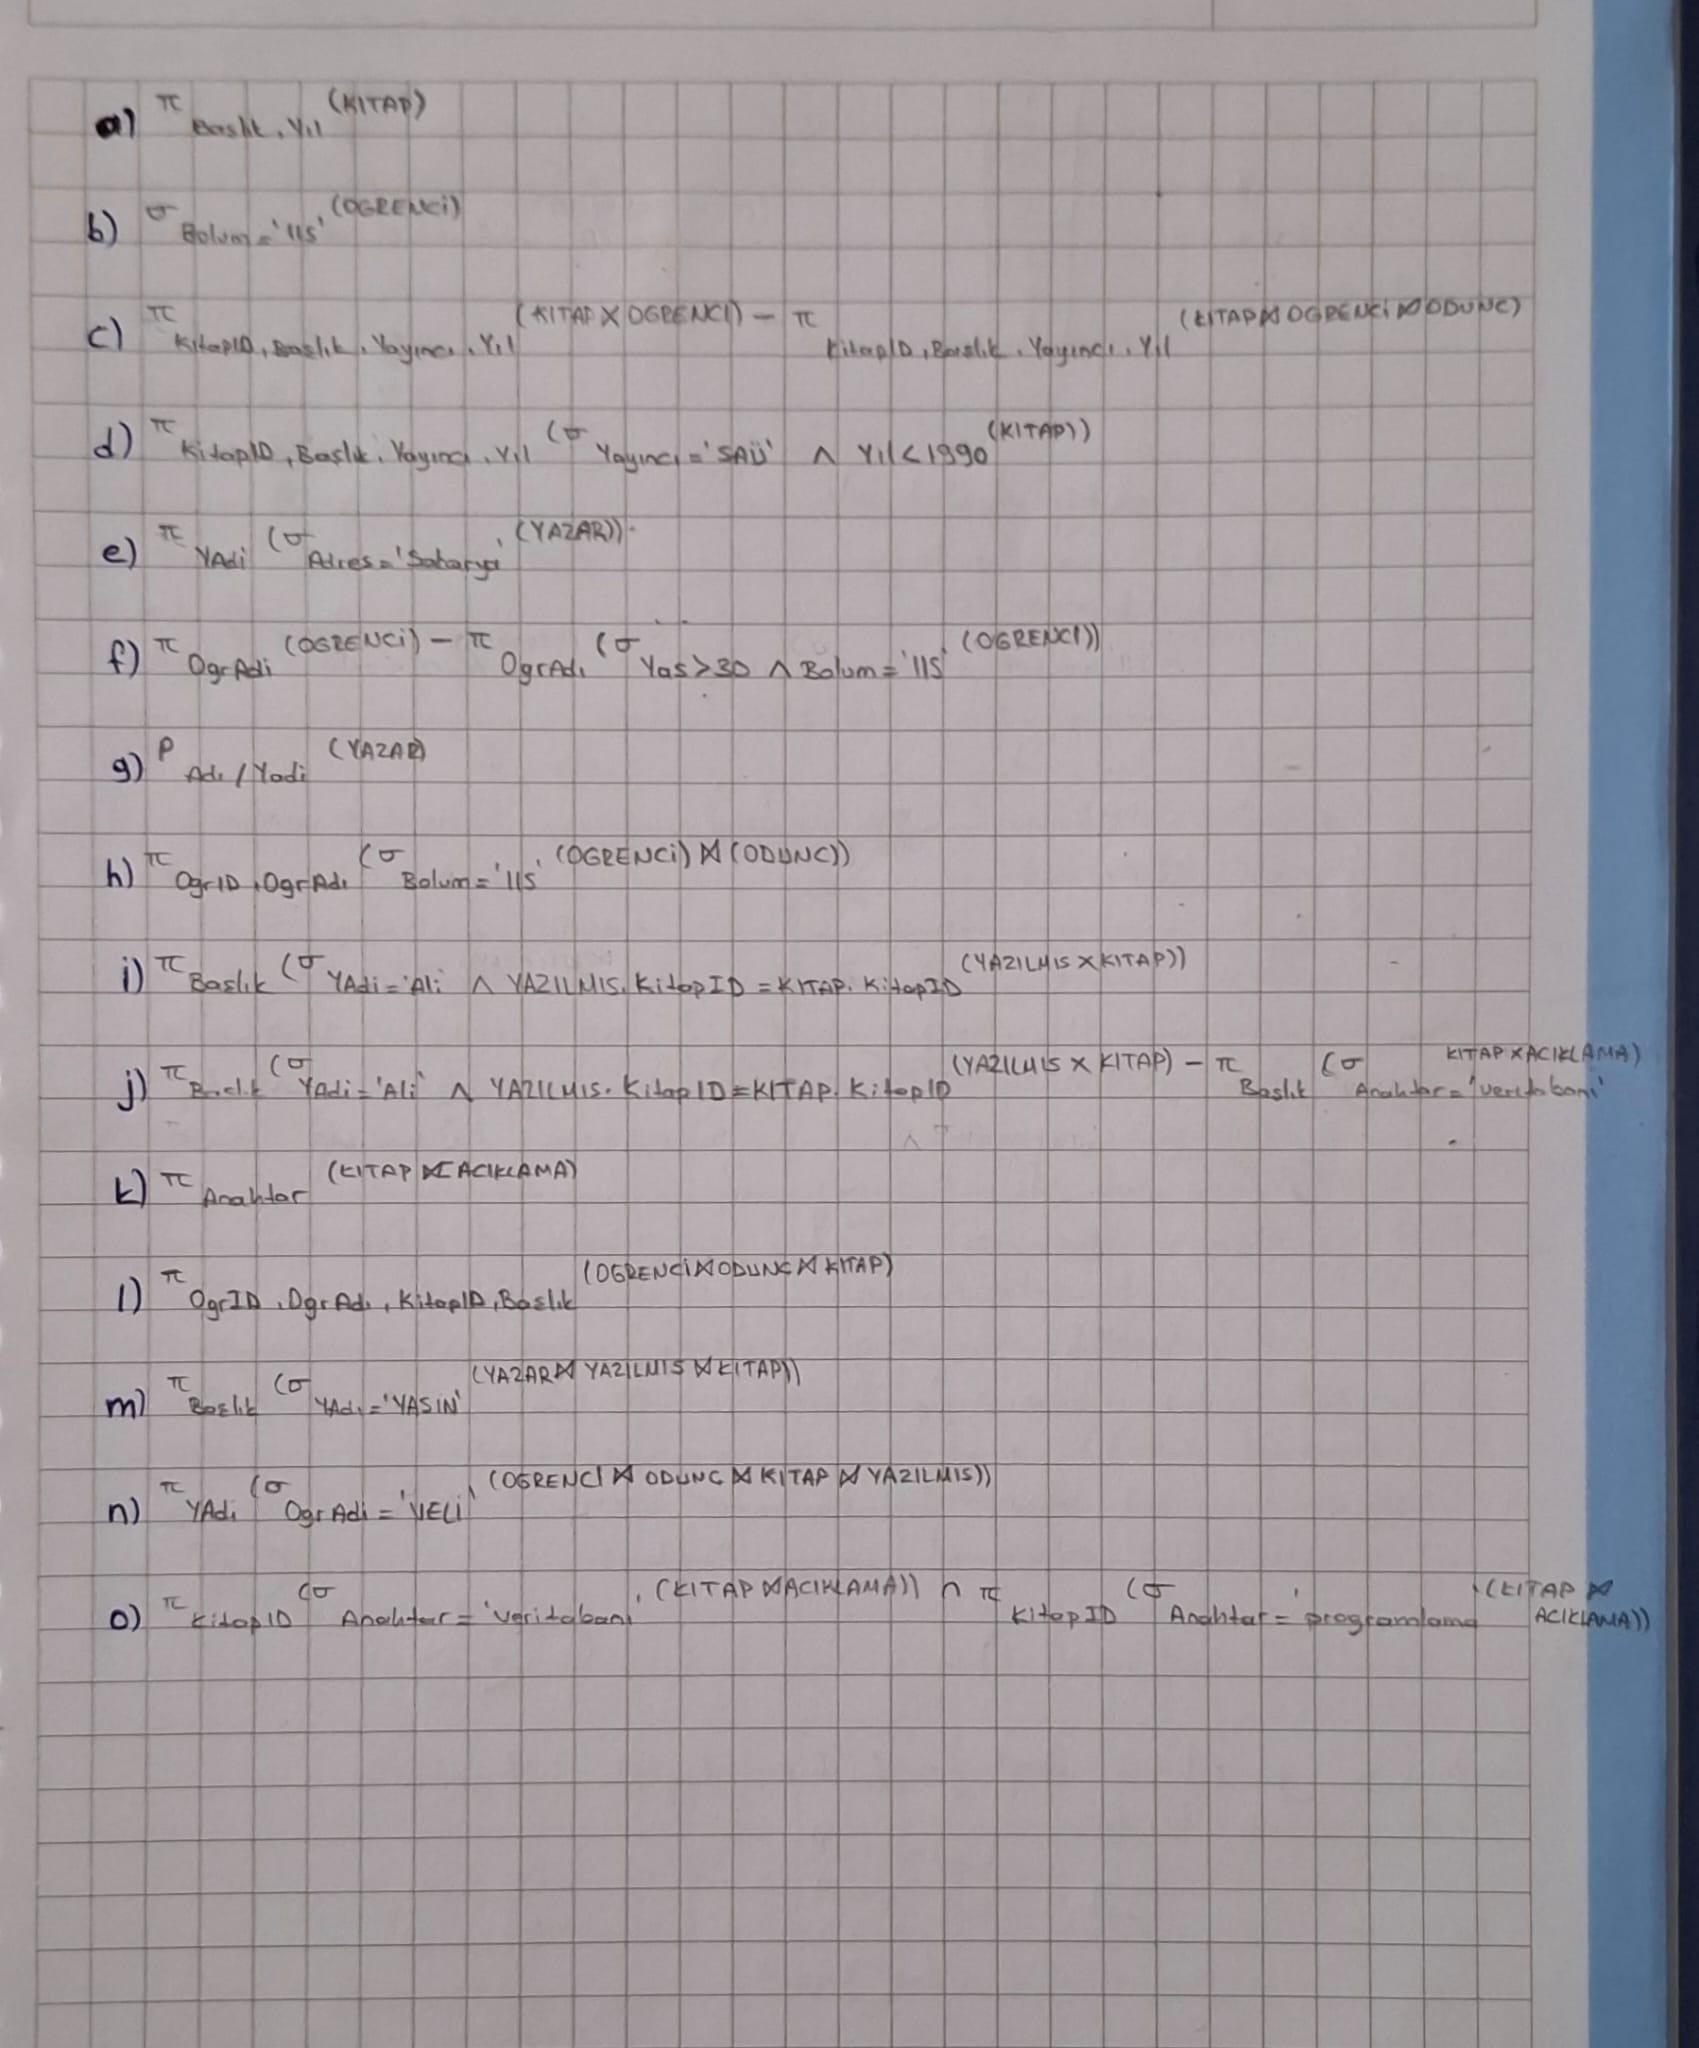 a) π Baslık, Yıl (KITAP)
b) σ Bolum='IIS' (OGRENCi)
c) π KitapID, Baslık, Yayıncı, Yıl (KITAP X OGRENCI) − π KitapID, Baslık, Yayıncı, Yıl (KITAP ⋈ OGRENCi ⋈ ODUNC)
d) π KitapID, Başlık, Yayıncı, Yıl (σ Yayıncı='SAÜ' ∧ Yıl<1990 (KITAP))
e) π YAdi (σ Adres='Sakarya' (YAZAR))
f) π OgrAdi (OGRENCi) − π OgrAdı (σ Yas>30 ∧ Bolum='IIS' (OGRENCI))
g) ρ Adı / Yadi (YAZAR)
h) π OgrID, OgrAdı (σ Bolum='IIS' (OGRENCi) ⋈ (ODUNC))
i) π Baslık (σ YAdi='Ali ∧ YAZILMIS.KitapID = KITAP.KitapID (YAZILMIS X KITAP))
j) π Baslık (σ YAdi='Ali' ∧ YAZILMIS.KitapID=KITAP.KitapID (YAZILMIS X KITAP) − π Baslık (σ Anahtar='veritabanı' KITAP X ACIKLAMA)
k) π Anahtar (KITAP ⋈ ACIKLAMA)
l) π OgrID, OgrAdı, KitapID, Baslık (OGRENCi ⋈ ODUNC ⋈ KITAP)
m) π Baslık (σ YAdı='YASIN' (YAZAR ⋈ YAZILMIS ⋈ KITAP))
n) π YAdı (σ OgrAdi='VELi' (OGRENCI ⋈ ODUNC ⋈ KITAP ⋈ YAZILMIS))
o) π KitapID (σ Anahtar='veritabanı' (KITAP ⋈ ACIKLAMA)) ∩ π KitapID (σ Anahtar='programlama' (KITAP ⋈ ACIKLAMA))